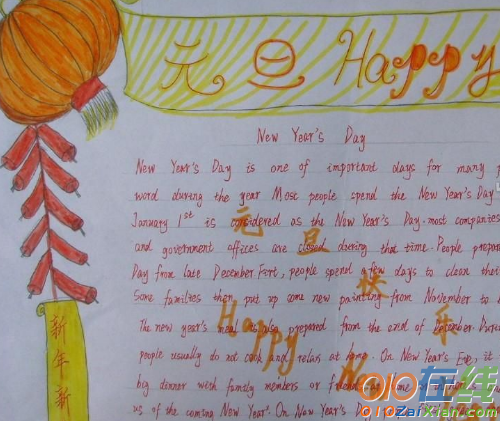 元旦 Happy
New Year's Day
New Year's Day is one of important days for many
word during the year Most people spend the New Year's Day
January 1st is considered as the New Year's Day. most companies
and government offices are closed during that time. People prepare
Day from late December. Fort, people spend a few days to clean their
Some families then put up come new painting from November to
The new year's meal is also prepared from the end of December. During
people usually do not cook and relax at home. On New Year's Eve, it
big dinner with family members or friend
us of the coming New Year. On New Year's Day
元旦快乐
Happy New Year
新年新
010在线
010ZaiXian.com